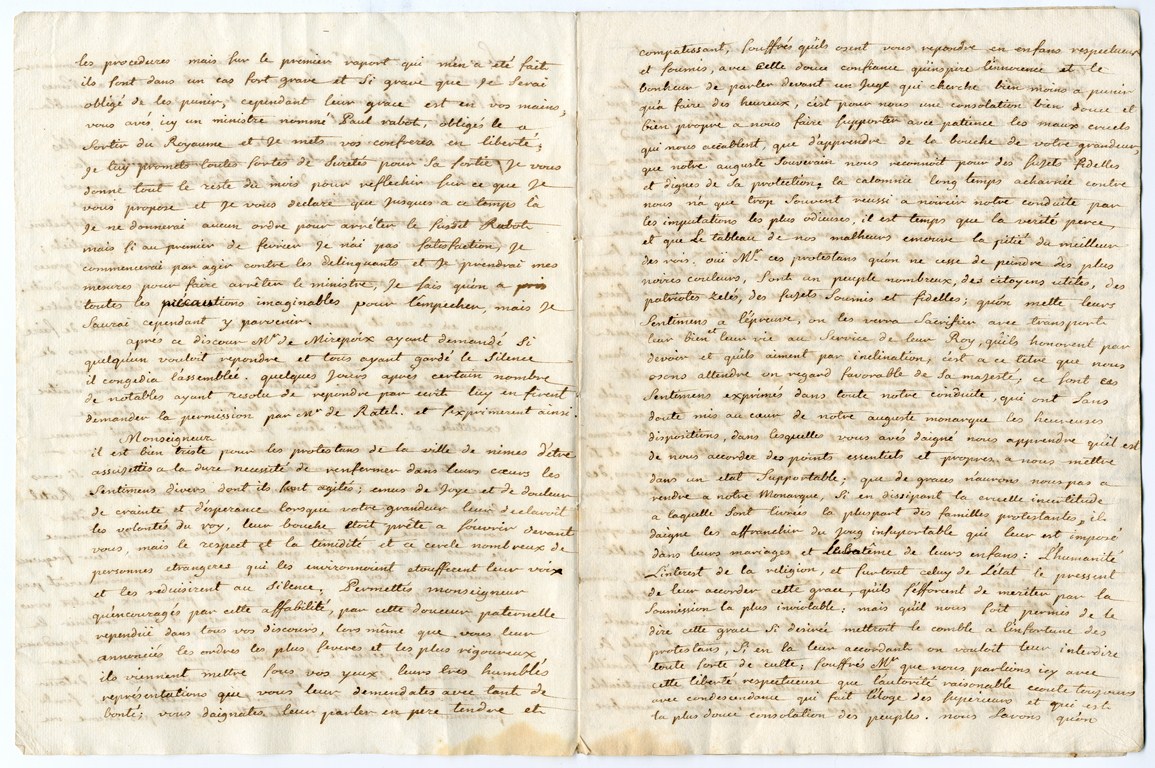 les procedures mais sur le premier raport qui m'en a eté fait
ils sont dans un cas fort grave et si grave que Je serai
obligé de les punir, cependant leur grace est en vos mains,
vous avés icy un ministre nommé Paul rabot, obligés le a
sortir du Royaume et Je mets vos confreres en liberté;
Je luy promets toutes sortes de sureté pour sa sortie, Je vous
donne tout le reste du mois pour reflechir sur ce que Je
vous propose et Je vous declare que Jusques a ce temps la
Je ne donnerai aucun ordre pour arrêter le susdit Rabot
mais si au premier de fevrier Je n'ai pas satisfaction, Je
commencerai par agir contre les delinquants et Je prendrai mes
mesures pour faire arrêter le ministre, Je sais qu'on a pris
toutes les précautions imaginables pour l'empecher, mais Je
saurai cependant y parvenir.
apres ce discour Mr. de Mirepoix ayant demandé si
quelqu'un vouloit repondre et tous ayant gardé le silence
il congedia l'assemblée. quelques Jours aprés certain nombre
de notables ayant resolu de repondre par ecrit luy en firent
demander la permission par Mr. de Ratel. et s'exprimerent ainsi.
Monseigneur
il est bien triste pour les protestans de la ville de nimes d'être
assujettis a la dure necessité de renfermer dans leurs cœurs les
sentimens divers dont ils sont agités; emus de Joye et de douleur
de crainte et d'esperance lorsque votre grandeur leur declaroit
les volontés du roy, leur bouche etoit prête a s'ouvrir devant
vous, mais le respect et la timidité et ce cercle nombreux de
personnes etrangeres qui les environnoient etoufferent leur voix
et les reduisirent au silence. Permettés monseigneur
qu'encouragés par cette affabilité, par cette douceur paternelle
rependüe dans tous vos discours, lors même que vous leur
annonciés les ordres les plus severes et les plus rigoureux
ils viennent mettre sous vos yeux leurs trés humblés
representations que vous leur demendates avec tant de
bonté; vous daignates leur parler en pere tendre et
compatissant, souffrés qu'ils osent vous repondre en enfans respectueux
et soumis, avec cette douce confiance qu'inspire l'innocence et le
bonheur de parler devant un Juge qui cherche bien moins a punir
qu'a faire des heureux, c'est pour nous une consolation bien douce et
bien propre a nous faire supporter avec patience les maux cruels
qui nous accablent, que d'apprendre de la bouche de votre grandeur,
que notre auguste souverain nous reconnoit pour des sujets fidelles
et dignes de sa protection. la calomnie long temps acharnée contre
nous n'a que trop souvent reussi a noircir notre conduite par
les imputations les plus odieuses, il est temps que la verité perce,
et que Le tableau de nos malheurs emouve la pitié du meilleur
des rois. ouï Mr. ces protestans qu'on ne cesse de peindre des plus
noires couleurs, sont un peuple nombreux, des citoyens utiles, des
patriotes zelés, des sujets soumis et fidelles; qu'on mette leurs
sentimens a l'épreuve, on les verra sacrifier avec transport
leur bien et leur vie au service de leur Roy, qu'ils honorent par
devoir et qu'ils aiment par inclination, c'est a ce titre que nous
osons attendre un regard favorable de sa majesté, ce sont ces
sentimens exprimés dans toute notre conduite, qui ont sans
doute mis au cœur de notre auguste monarque les heureuses
dispositions, dans lesquelles vous avés daigné nous apprendre qu'il est
de nous accorder des points essentiels et propres a nous mettre
dans un etat supportable; que de graces n'aurons nous pas a
rendre a notre Monarque, si en dissipant la cruelle incertitude
a laquelle sont livrées la pluspart des familles protestantes, il
daigne les affranchir du Joug insuportable qui leur est imposé
dans leurs mariages et le batême de leurs enfans: L'humanité
L'interest de la religion, et surtout celuy de L'etat le pressent
de leur accorder cette grace, qu'ils s'efforcent de meriter par la
soumission la plus inviolable: mais qu'il nous soit permis de le
dire cette grace si desirée mettroit le comble a l'infortune des
protestans, si en la leur accordant on vouloit leur interdire
toute sorte de culte; souffrés Mr. que nous parlions icy avec
cette liberté respectueuse que l'autorité raisonable ecoute toujours
avec condescendance qui fait l'éloge des superieurs et qui est
la plus douce consolation des peuples. nous savons qu'on